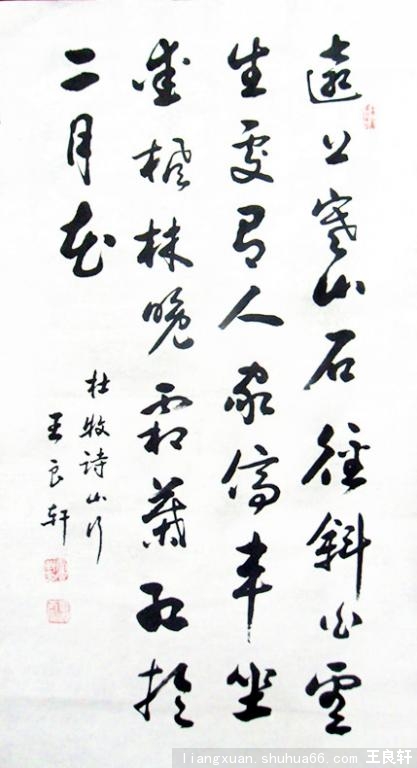 遠上寒山石徑斜白雲
生處有人家停車坐
愛楓林晚霜葉紅於
二月花
杜牧詩山行
王良轩
liangxuan.shuhua66.com 王良轩